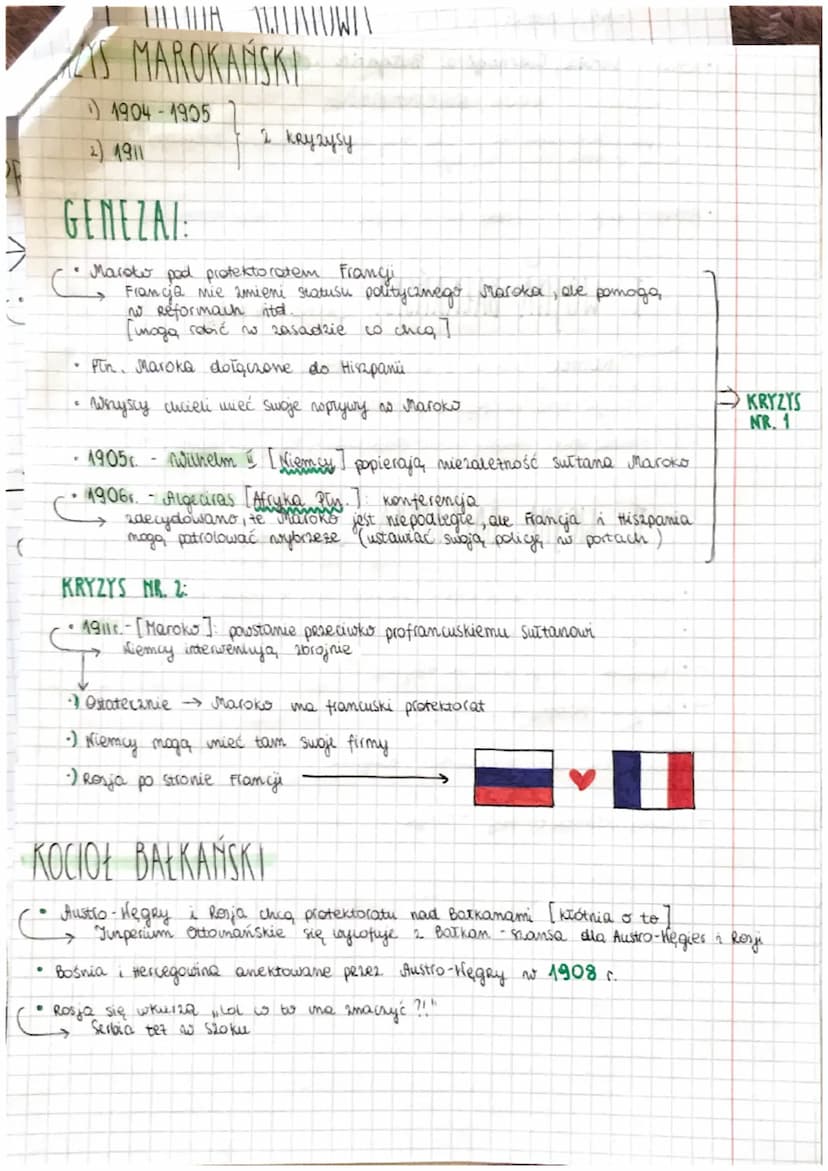 MAROKAŃSKI
1) 1904 - 1905
2) 1911
2 kryzysy
GENEZA I:
• Maroko pod protektoratem Francji
→ Francja nie zmieni statusu politycznego Maroka, ale pomogą
w reformach itd.
[mogą robić w zasadzie co chcą]
• Płn. Maroka dołączone do Hiszpanii
• Wszyscy chcieli mieć swoje wpływy w Maroko
⇒ KRYZYS
NR. 1
• 1905r. - Wilhelm II [Niemcy] popierają niezależność sułtana Maroko
• 1906r. - Algeciras [Afryka Płn.]: konferencja
→ zdecydowano, że Maroko jest niepodległe, ale Francja i Hiszpania
mogą patrolować wybrzeże (ustawiać swoją policję w portach)
KRYZYS NR. 2:
• 1911r. - [Maroko]: powstanie przeciwko profrancuskiemu sułtanowi
→ Niemcy interweniują zbrojnie
·) Ostatecznie → Maroko ma francuski protektorat
·) Niemcy mogą mieć tam swoje firmy
·) Rosja po stronie Francji
KOCIOŁ BAŁKAŃSKI
• Austro-Węgry i Rosja chcą protektoratu nad Bałkanami [kłótnia o to]
→ Imperium Ottomańskie się wylotuje z Bałkan - szansa dla Austro-Węgier i Rosji
• Bośnia i Hercegowina anektowane przez Austro-Węgry w 1908 r.
• Rosja się wkurza „Lol co to ma znaczyć ?!"
→ Serbia też w szoku